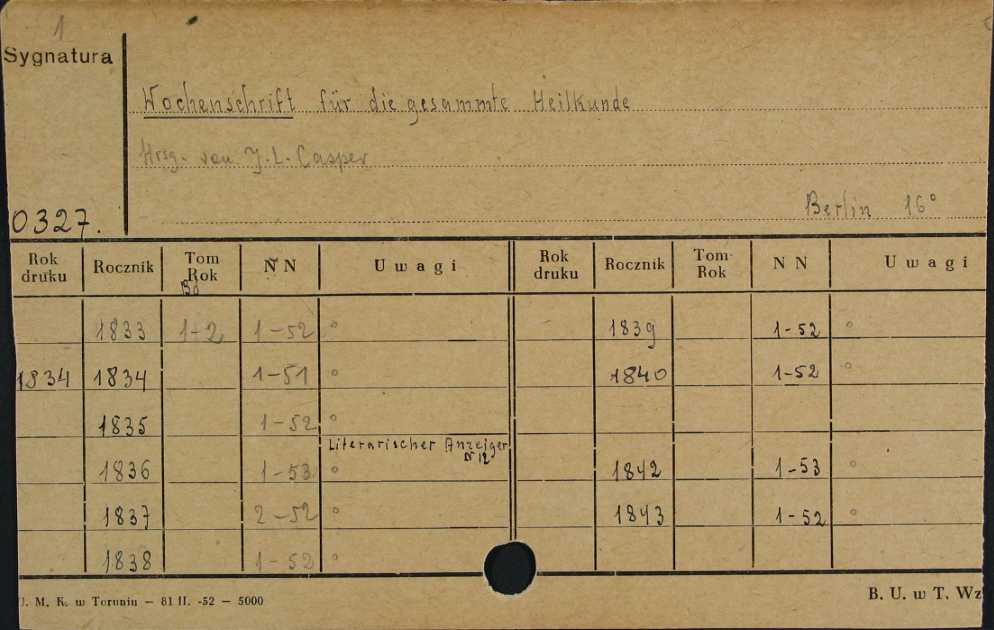 1
Sygnatura
Wochenschrift für die gesammte Heilkunde
Hrsg. von J. L. Casper
Berlin 16°
0327.
Rok druku Rocznik Tom Rok N N Uwagi Rok druku Rocznik Tom Rok N N Uwagi
Bd
1833 1+2 1-52 ° 1839 1-52 °
1834 1834 1-51 ° 1840 1-52 °
1835 1-52 °
Literarischer Anzeiger N 12
1836 1-53 ° 1842 1-53 °
1837 2-52 ° 1843 1-52 °
1838 1-52 °
U. M. K. w Toruniu — 81 II. -52 — 5000
B. U. w T. Wz